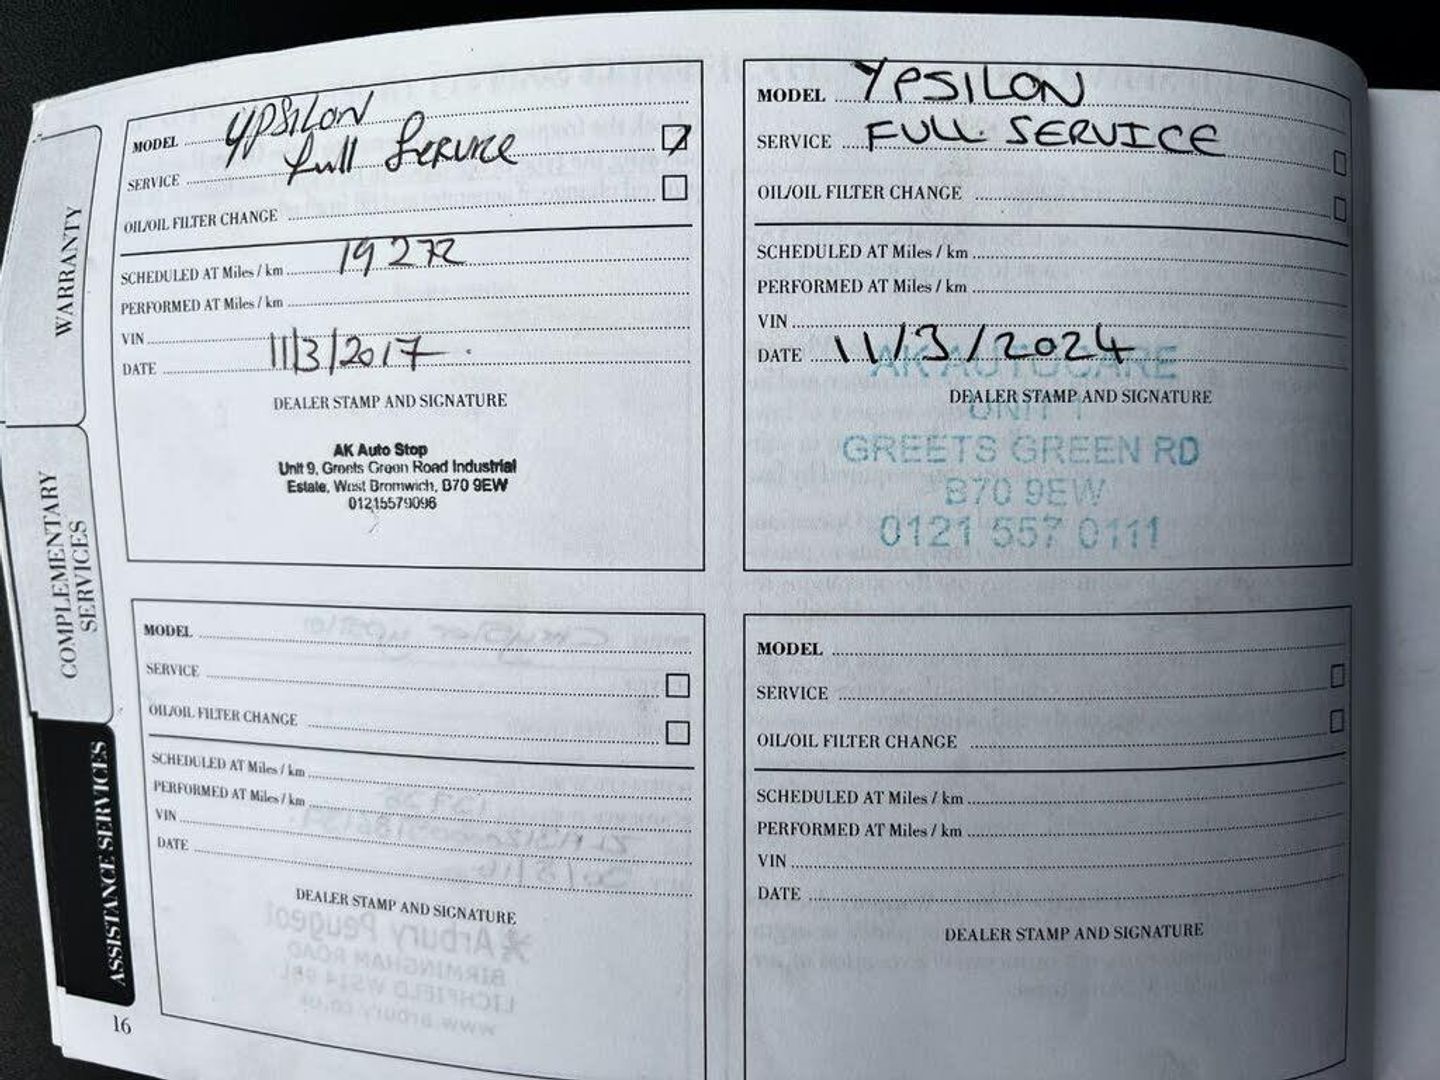 WARRANTY
COMPLEMENTARY
SERVICES
ASSISTANCE SERVICES
MODEL YPSILON
SERVICE full Service
OIL/OIL FILTER CHANGE
SCHEDULED AT Miles / km 19 272
PERFORMED AT Miles / km
VIN
DATE 11/3/2017
DEALER STAMP AND SIGNATURE
AK Auto Stop
Unit 9, Greets Green Road Industrial
Estate, West Bromwich, B70 9EW
01215579096
MODEL YPSILON
SERVICE FULL SERVICE
OIL/OIL FILTER CHANGE
SCHEDULED AT Miles / km
PERFORMED AT Miles / km
VIN
DATE 11/3/2024
AK AUTOCARE
DEALER STAMP AND SIGNATURE
UNIT 1
GREETS GREEN RD
B70 9EW
0121 557 0111
MODEL
SERVICE
OIL/OIL FILTER CHANGE
SCHEDULED AT Miles / km
PERFORMED AT Miles / km
VIN
DATE
DEALER STAMP AND SIGNATURE
MODEL
SERVICE
OIL/OIL FILTER CHANGE
SCHEDULED AT Miles / km
PERFORMED AT Miles / km
VIN
DATE
DEALER STAMP AND SIGNATURE
16